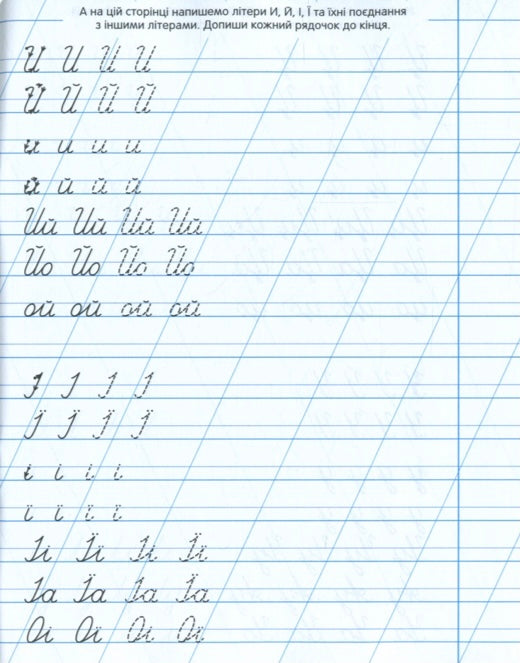 А на цій сторінці напишемо літери И, Й, І, Ї та їхні поєднання
з іншими літерами. Допиши кожний рядочок до кінця.
И И И И
Й Й Й Й
и и и и
й й й й
Ий Ий Ий Ий
Йо Йо Йо Йо
ой ой ой ой
І І І І
Ї Ї Ї Ї
і і і і
ї ї ї ї
Іі Її Іі Її
Іа Їа Іа Їа
Оі Ої Оі Ої